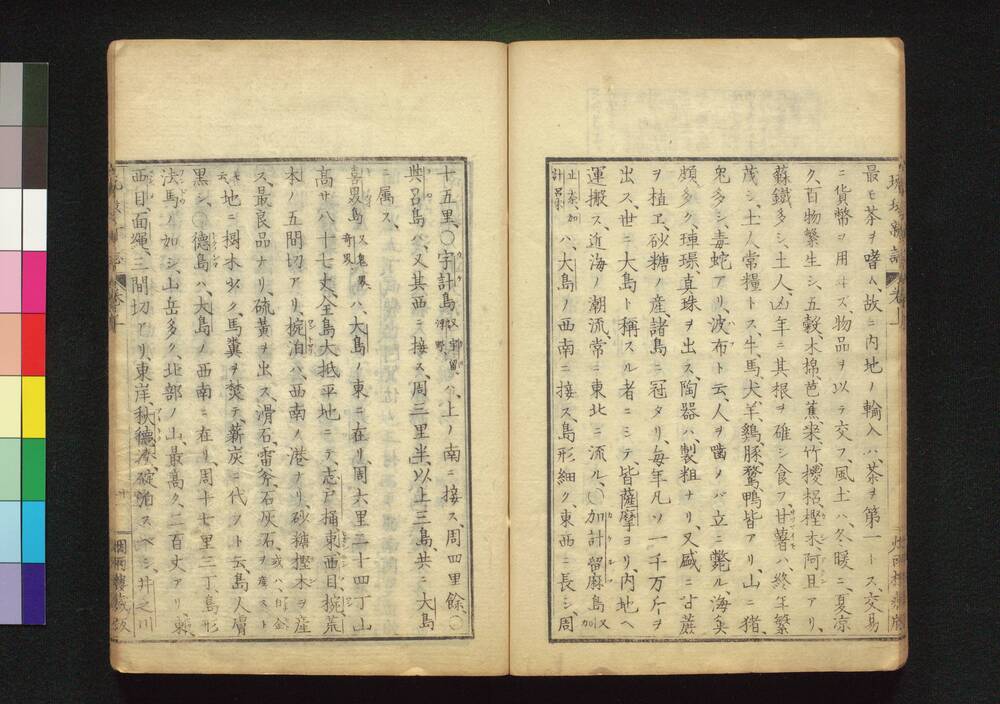 最モ茶ヲ嗜ム、故ニ内地ノ輸入ハ、茶ヲ第一トス、交易
ニ貨幣ヲ用ヰズ、物品ヲ以テ交フ、風土ハ、冬暖ニ、夏涼
ク、百物繁生シ、五穀、木棉、芭蕉、米、竹、椶梠、樫木、阿旦アリ、
蘇鐵多シ、土人、凶年ニ其根ヲ碓シ食フ、甘藷ハ、終年繁
茂シ、土人常糧トス、牛、馬、犬、羊、鷄、豚、鶩、鴨皆アリ、山ニ猪、
兔多シ、毒蛇アリ、波布ト云、人ヲ嚙メバ立ニ斃ル、海魚
頗多ク、玳瑁、真珠ヲ出ス、陶器ハ、製粗ナリ、又盛ニ甘蔗
ヲ植ヱ、砂糖ノ産、諸島ニ冠タリ、毎年凡ソ一千万斤ヲ
出ス、世ニ大島ト稱スル者ニシテ、皆薩摩ヨリ、内地ヘ
運搬ス、近海ノ潮流、常ニ東北ニ流ル、○加計留麻島又加
計呂麻ハ、大島ノ西南ニ接ス、島形細ク、東西ニ長シ、周
十五里、○宇計島ハ、上ノ南ニ接ス、周四里餘、○
與呂島ハ、又其西ニ接ス、周三里半、以上三島、共ニ大島
ニ属ス、
喜界島又鬼界奇界ハ、大島ノ東ニ在リ、周六里二十四丁、山
高サ八十七丈、全島大抵平地ニテ、志戸桶、東、西目、椀、荒
木ノ五間切アリ、椀泊ハ、西南ノ港ナリ、砂糖、樫木ヲ産
ス、最良品ナリ、硫黄ヲ出ス、滑石、雷斧石、灰石ヲ産スト
云地ニ樹木少ク、馬糞ヲ焚テ、薪炭ニ代フト云、島人膚
黒シ、○德島ハ、大島ノ西南ニ在リ、周十七里三丁、島形
法馬ノ如シ、山岳多ク、北部ノ山、最高ク、二百丈アリ、東、
西目、面縄、三間切アリ、東岸秋德湊、碇泊スベシ、井之川